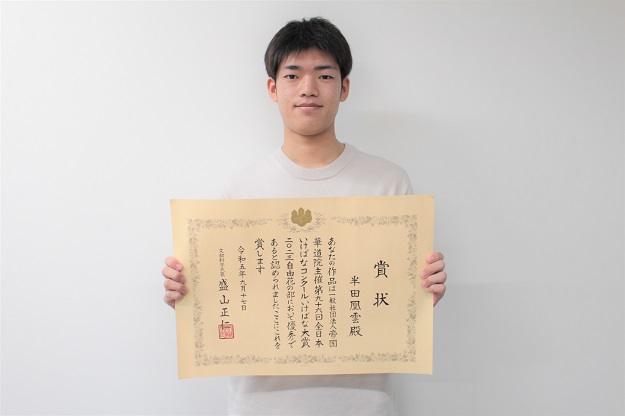 賞状
半田凰雲殿
あなたの作品は一般社団法人帝国
華道院主催第九十六回全日本
いけばなコンクールいけばな大賞
二〇二三自由花の部において優秀で
あると認められましたここにこれを
賞します
令和五年九月十七日
文部科学大臣 盛山正仁